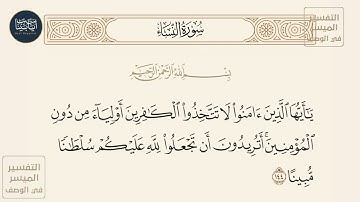 سُورَةُ النِّسَاءِ
التفسير
الميسر
في الوصف
بِسْمِ اللَّهِ الرَّحْمَٰنِ الرَّحِيمِ
يَٰٓأَيُّهَا ٱلَّذِينَ ءَامَنُوا۟ لَا تَتَّخِذُوا۟ ٱلْكَٰفِرِينَ أَوْلِيَآءَ مِن دُونِ
ٱلْمُؤْمِنِينَ ۚ أَتُرِيدُونَ أَن تَجْعَلُوا۟ لِلَّهِ عَلَيْكُمْ سُلْطَٰنًا
مُّبِينًا ١٤٤
التفسير
الميسر
في الوصف